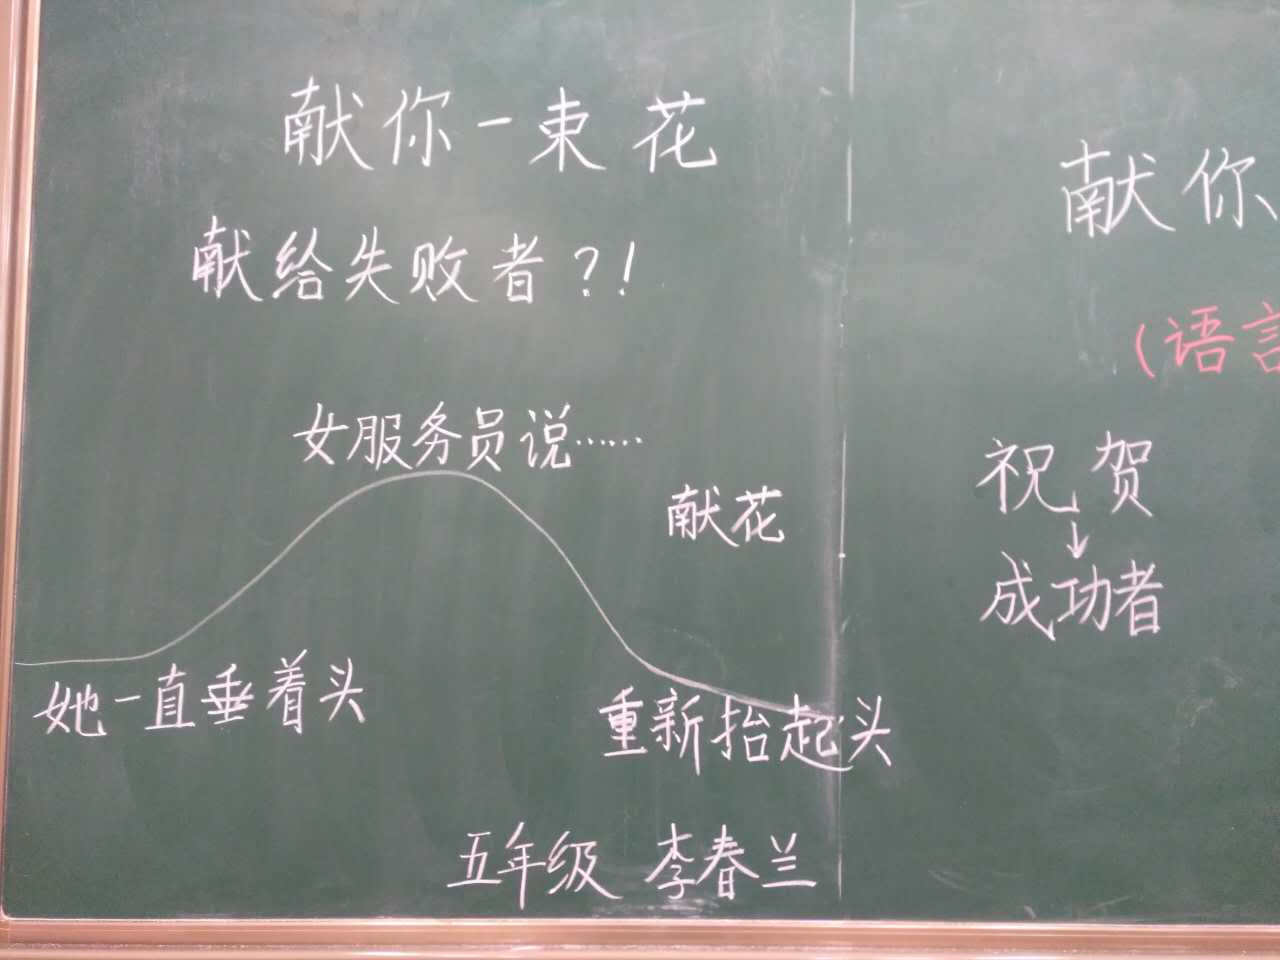 献你一束花
献给失败者?!
女服务员说……
献花
她一直垂着头
重新抬起头
五年级 李春兰
献你
(语言
祝贺
↓
成功者